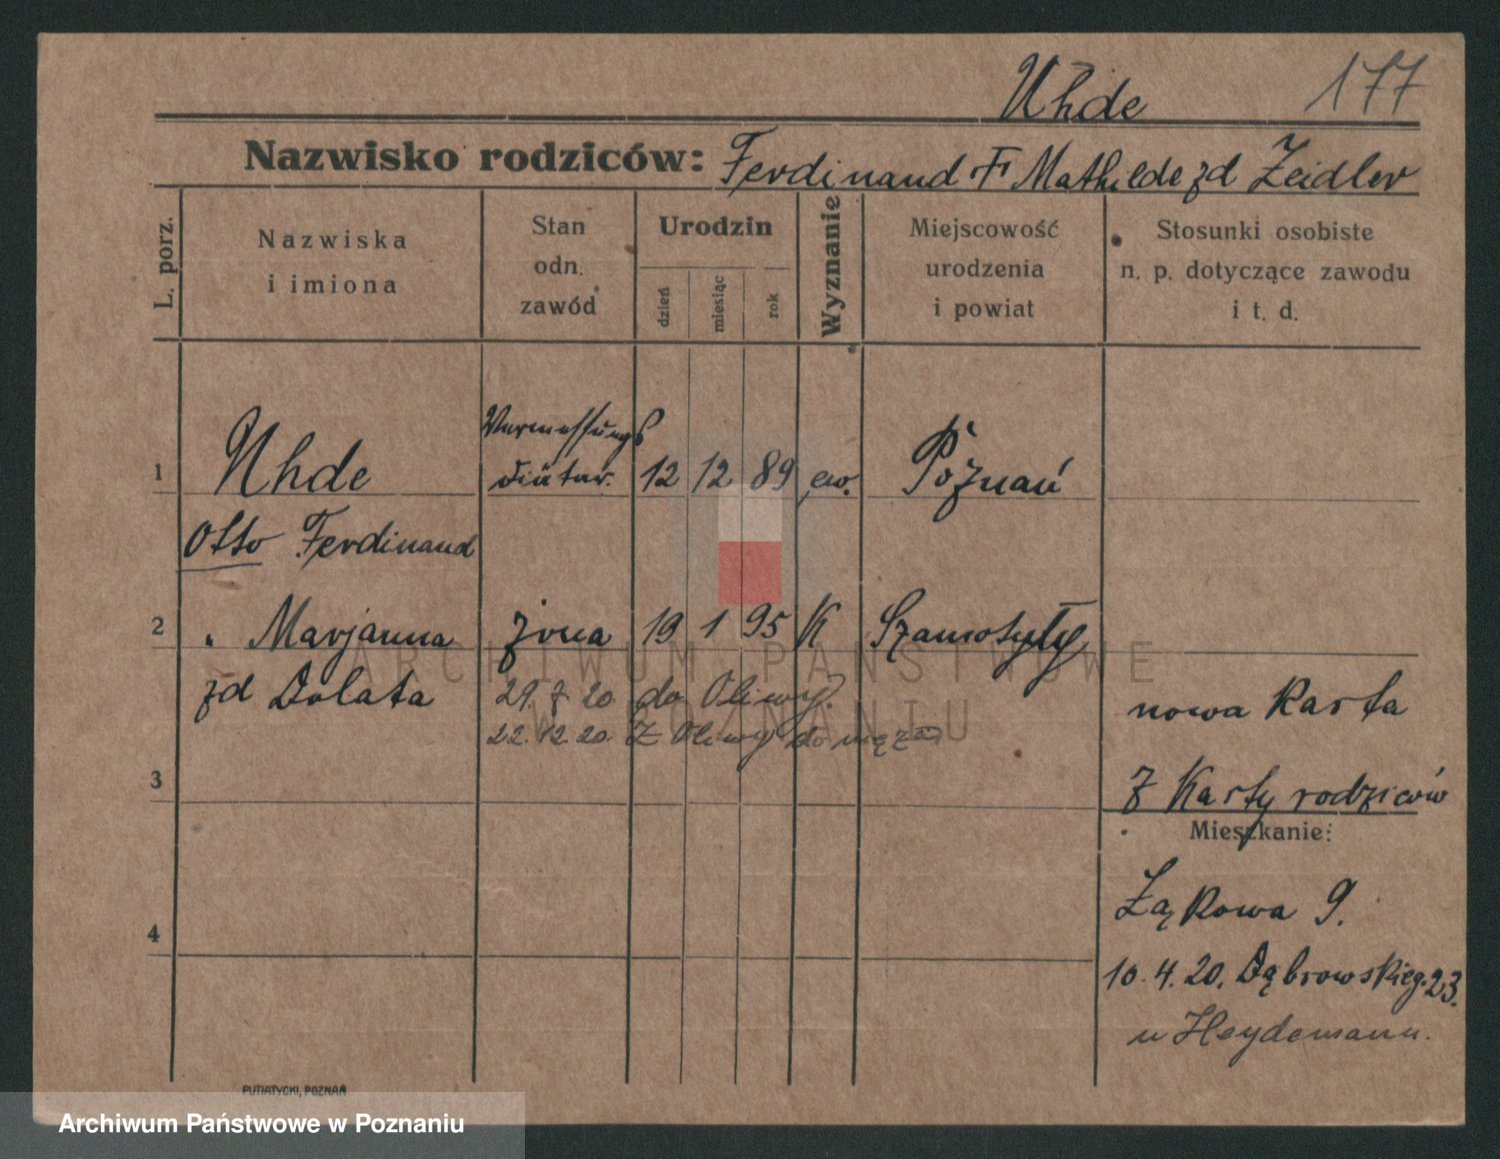 Uhde 177
Nazwisko rodziców: Ferdinand i Mathilde zd Zeidler
L. porz.
Nazwiska
i imiona
Stan
odn.
zawód
Urodzin
dzień
miesiąc
rok
Wyznanie
Miejscowość
urodzenia
i powiat
Stosunki osobiste
n. p. dotyczące zawodu
i t. d.
Vermessungs
1 Uhde diätar. 12 12 89 ew. Poznań
Otto Ferdinand
2 " Marjanna żona 19 1 95 K Szamotuły
zd Dolata 29. 7 20 do Oliwy. nowa Karta
22.12.20 Z Oliwy do męża
3 Z Karty rodziców
Mieszkanie:
Łąkowa 9.
4
10.4.20. Dąbrowskieg. 23.
u Heydemann.
PUTIATYCKI, POZNAŃ
ARCHIWUM PAŃSTWOWE
W POZNANIU
Archiwum Państwowe w Poznaniu